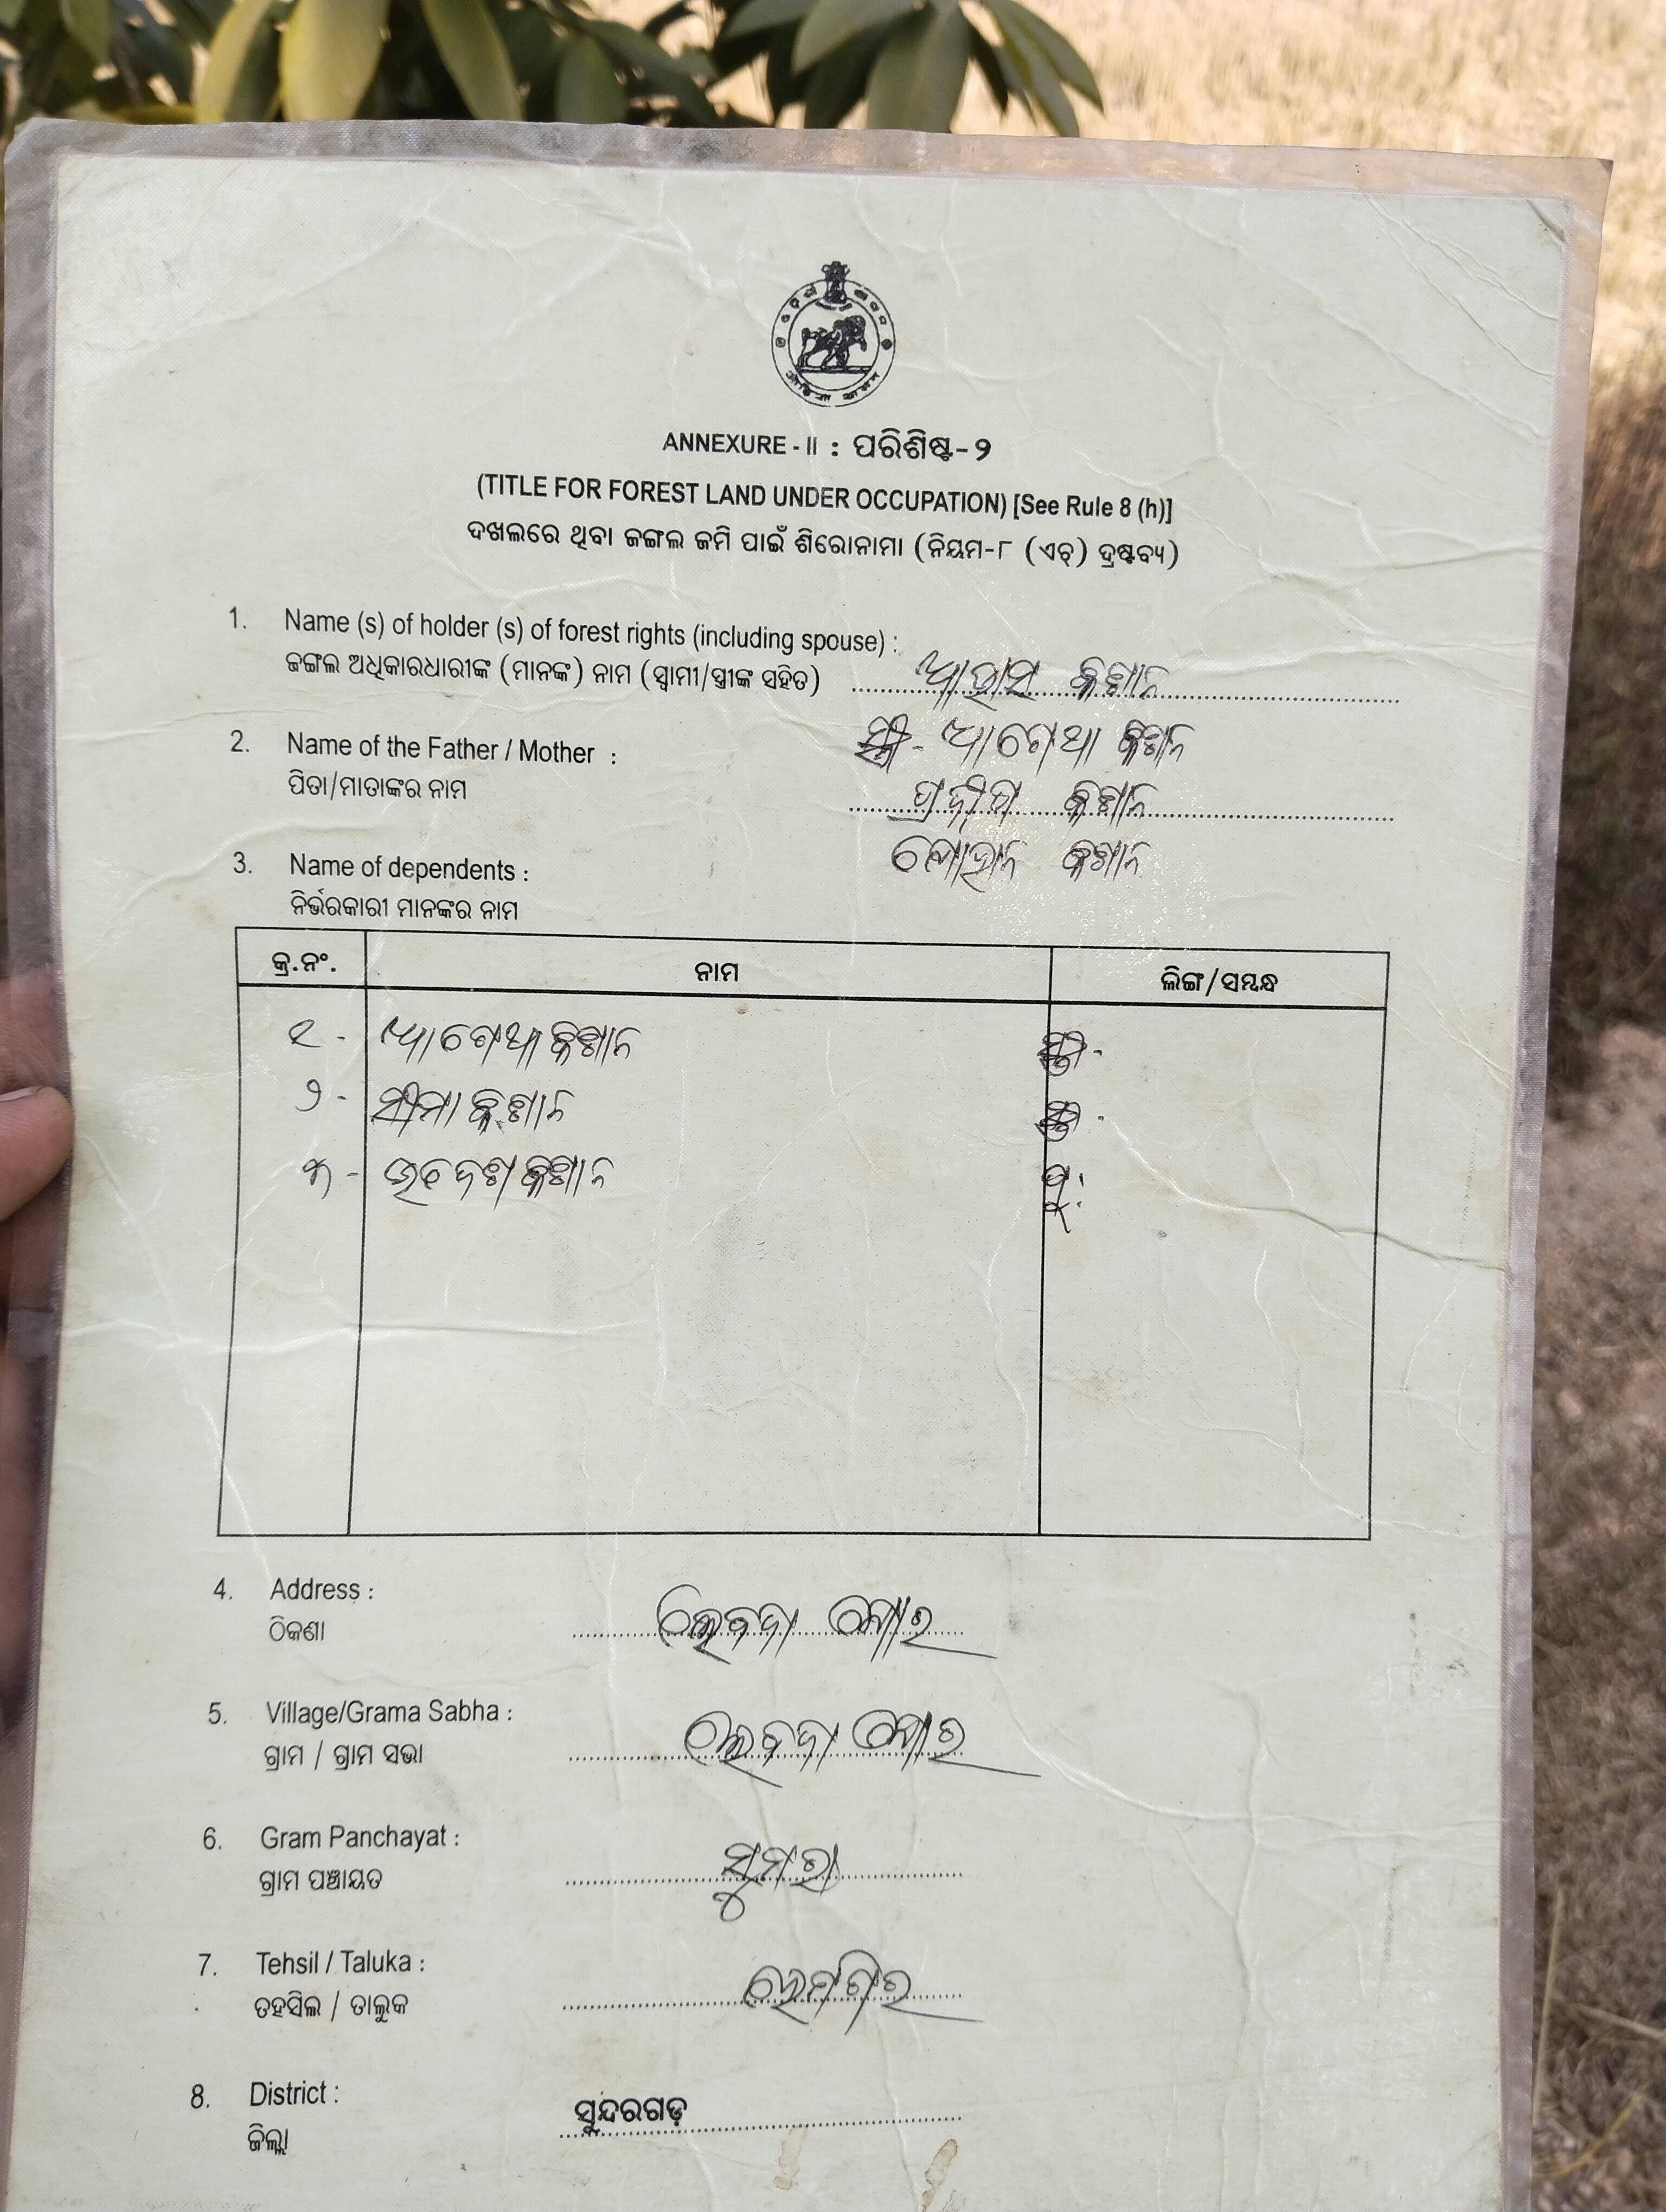 ANNEXURE - II : ପରିଶିଷ୍ଟ-୨
(TITLE FOR FOREST LAND UNDER OCCUPATION) [See Rule 8 (h)]
ଦଖଲରେ ଥିବା ଜଙ୍ଗଲ ଜମି ପାଇଁ ଶିରୋନାମା (ନିୟମ-୮ (ଏଚ୍) ଦ୍ରଷ୍ଟବ୍ୟ)
1. Name (s) of holder (s) of forest rights (including spouse) :
ଜଙ୍ଗଲ ଅଧିକାରଧାରୀଙ୍କ (ମାନଙ୍କ) ନାମ (ସ୍ୱାମୀ/ସ୍ତ୍ରୀଙ୍କ ସହିତ) ଆଭାସ କିଷାନ
ସ୍ତ୍ରୀ - ଆଗେଥା କିଷାନ
2. Name of the Father / Mother :
ପିତା/ମାତାଙ୍କର ନାମ ପ୍ରଦୀପ କିଷାନ
କିଷାନ
3. Name of dependents :
ନିର୍ଭରକାରୀ ମାନଙ୍କର ନାମ
କ୍ର.ନଂ. ନାମ ଲିଙ୍ଗ/ସମ୍ବନ୍ଧ
୧ - ଆଗେଥା କିଷାନ ସ୍ତ୍ରୀ -
୨ - ସୀମା କିଷାନ ସ୍ତ୍ରୀ -
୩ - କିଷାନ ପୁ:
4. Address :
ଠିକଣା
5. Village/Grama Sabha :
ଗ୍ରାମ / ଗ୍ରାମ ସଭା
6. Gram Panchayat :
ଗ୍ରାମ ପଞ୍ଚାୟତ ସୁମରା
7. Tehsil / Taluka :
ତହସିଲ / ତାଲୁକ ଲେଫ୍ରିପଡ଼ା
8. District :
ଜିଲ୍ଲା ସୁନ୍ଦରଗଡ଼